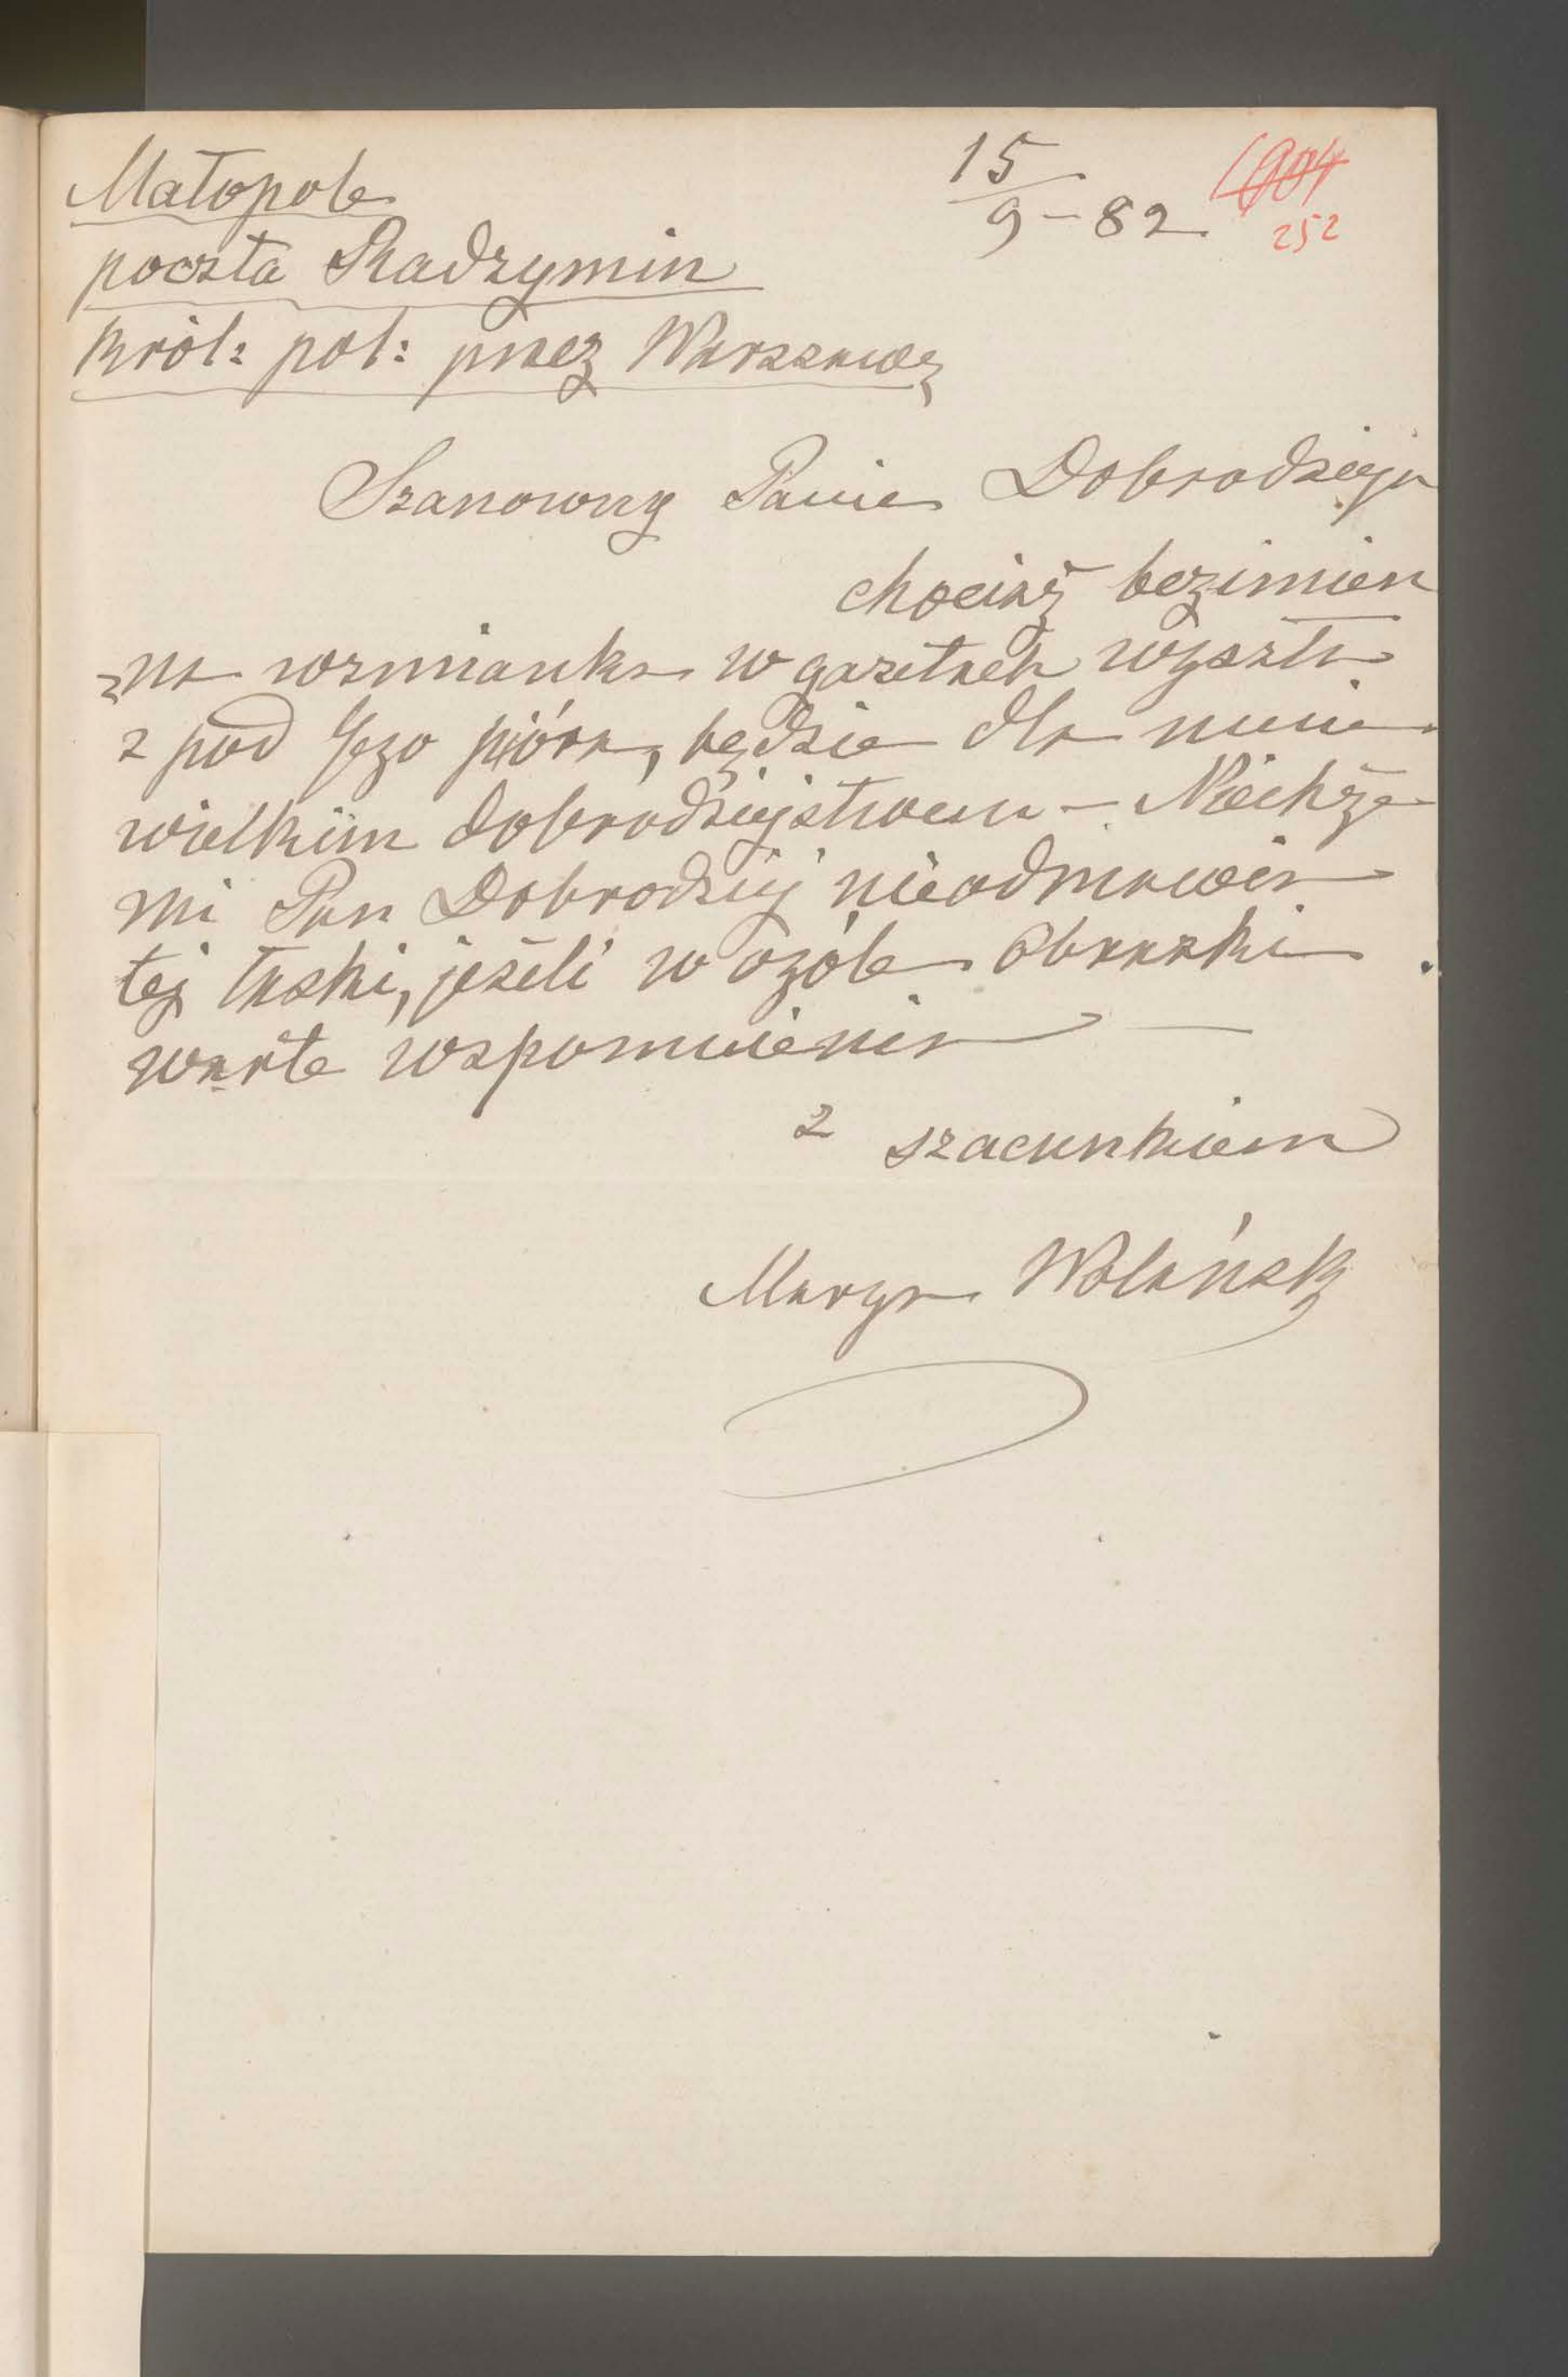 Małopole
15/9 - 82
252
poczta Radzymin
Król: pol: przez Warszawę
Szanowny Panie Dobrodzieju
chociaż bezimien
=na wzmianka w gazetach wyszła
z pod Jego pióra, będzie dla mnie
wielkim dobrodziejstwem - Niechże
mi Pan Dobrodziej nieodmawia
tej łaski, jeżeli w ogóle obrazki
warte wspomnienia —
z szacunkiem
Marya Wolańsk